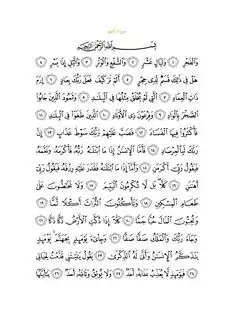 سورة الفجر
بِسْمِ اللَّهِ الرَّحْمَٰنِ الرَّحِيمِ
وَالْفَجْرِ ١ وَلَيَالٍ عَشْرٍ ٢ وَالشَّفْعِ وَالْوَتْرِ ٣ وَاللَّيْلِ إِذَا يَسْرِ ٤
هَلْ فِي ذَٰلِكَ قَسَمٌ لِّذِي حِجْرٍ ٥ أَلَمْ تَرَ كَيْفَ فَعَلَ رَبُّكَ بِعَادٍ ٦ إِرَمَ
ذَاتِ الْعِمَادِ ٧ الَّتِي لَمْ يُخْلَقْ مِثْلُهَا فِي الْبِلَٰدِ ٨ وَثَمُودَ الَّذِينَ جَابُوا
الصَّخْرَ بِالْوَادِ ٩ وَفِرْعَوْنَ ذِي الْأَوْتَادِ ١٠ الَّذِينَ طَغَوْا فِي الْبِلَٰدِ ١١
فَأَكْثَرُوا فِيهَا الْفَسَادَ ١٢ فَصَبَّ عَلَيْهِمْ رَبُّكَ سَوْطَ عَذَابٍ ١٣ إِنَّ
رَبَّكَ لَبِالْمِرْصَادِ ١٤ فَأَمَّا الْإِنسَٰنُ إِذَا مَا ابْتَلَىٰهُ رَبُّهُ فَأَكْرَمَهُ وَنَعَّمَهُ
فَيَقُولُ رَبِّي أَكْرَمَنِ ١٥ وَأَمَّا إِذَا مَا ابْتَلَىٰهُ فَقَدَرَ عَلَيْهِ رِزْقَهُ فَيَقُولُ رَبِّي
أَهَٰنَنِ ١٦ كَلَّا بَل لَّا تُكْرِمُونَ الْيَتِيمَ ١٧ وَلَا تَحَٰضُّونَ عَلَىٰ
طَعَامِ الْمِسْكِينِ ١٨ وَتَأْكُلُونَ التُّرَاثَ أَكْلًا لَّمًّا ١٩
وَتُحِبُّونَ الْمَالَ حُبًّا جَمًّا ٢٠ كَلَّا إِذَا دُكَّتِ الْأَرْضُ دَكًّا دَكًّا ٢١
وَجَاءَ رَبُّكَ وَالْمَلَكُ صَفًّا صَفًّا ٢٢ وَجِاىءَ يَوْمَئِذٍ بِجَهَنَّمَ يَوْمَئِذٍ
يَتَذَكَّرُ الْإِنسَٰنُ وَأَنَّىٰ لَهُ الذِّكْرَىٰ ٢٣ يَقُولُ يَٰلَيْتَنِي قَدَّمْتُ لِحَيَاتِي
٢٤ فَيَوْمَئِذٍ لَّا يُعَذِّبُ عَذَابَهُ أَحَدٌ ٢٥ وَلَا يُوثِقُ وَثَاقَهُ أَحَدٌ ٢٦ يَٰأَيَّتُهَا